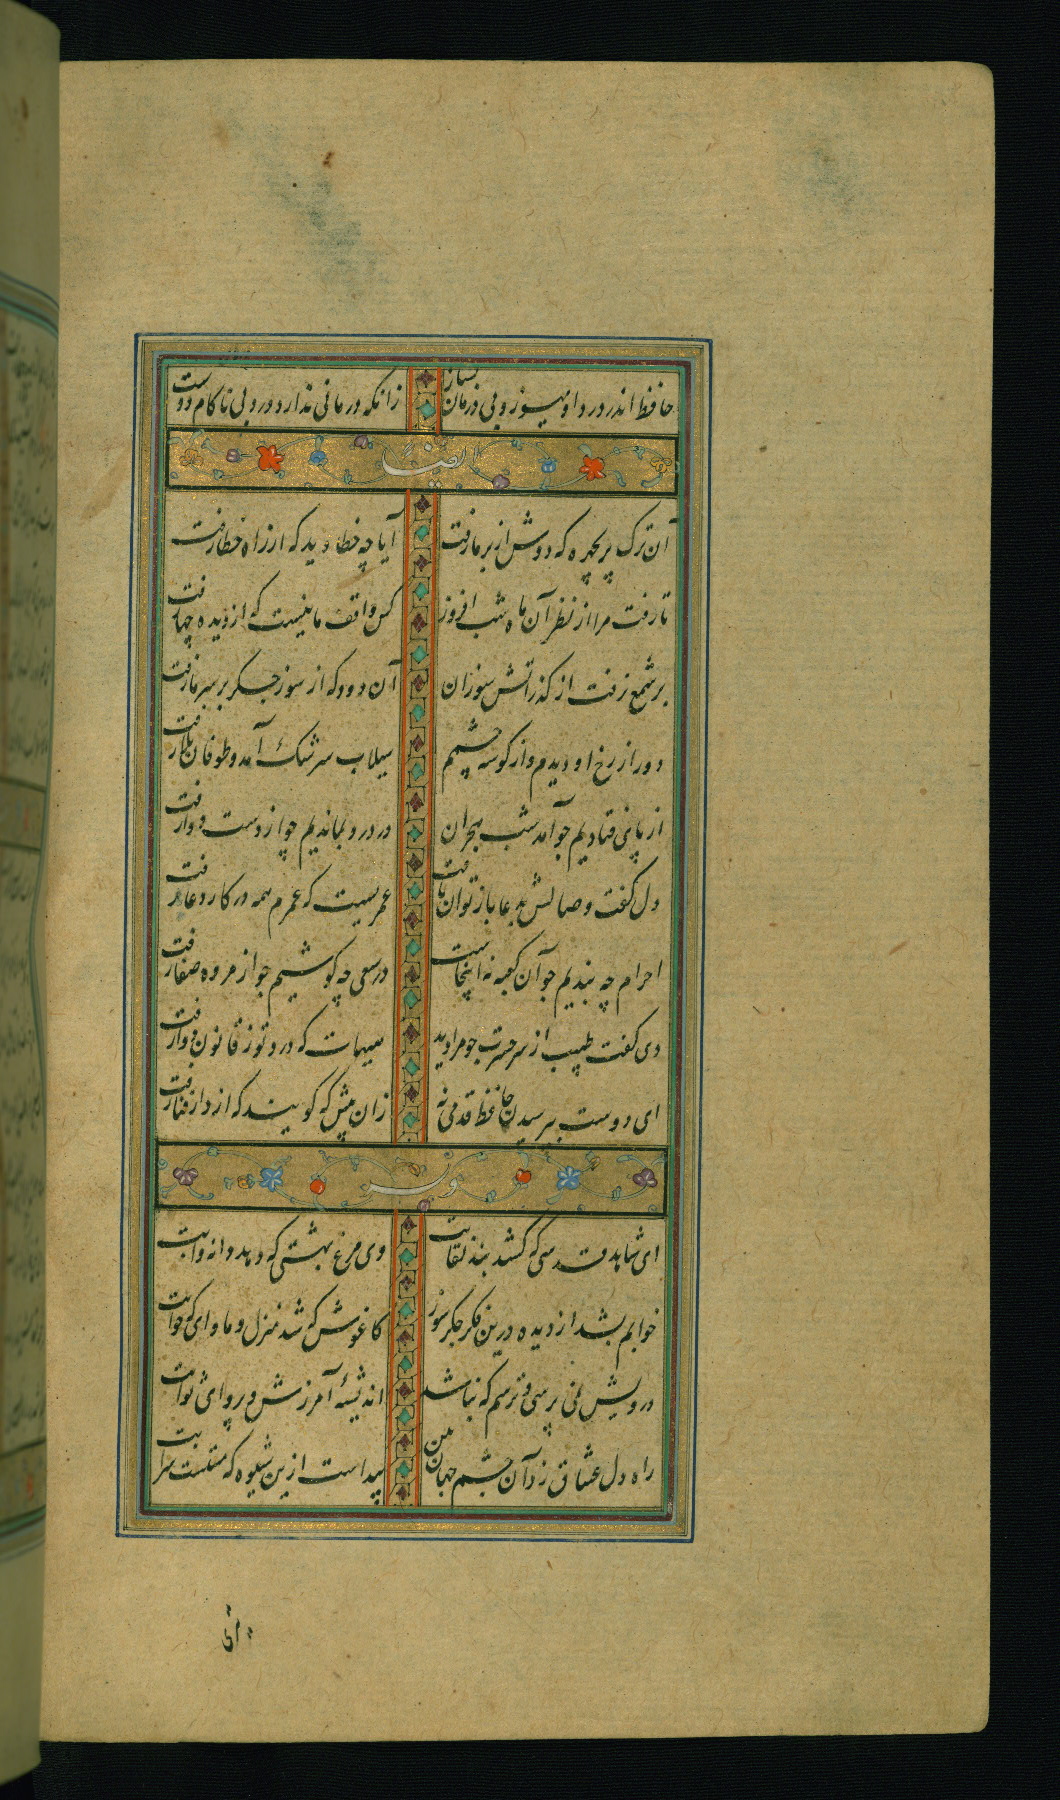 حافظ اندر درد او میسوز و بی درمان بساز زانکه درمانی ندارد درد بی آرام دوست
ایضاً
آن ترک پریچهره که دوش از بر ما رفت آیا چه خطا دید که از راه خطا رفت
تا رفت مرا از نظر آن ماه شب افروز کس واقف ما نیست که از دیده چها رفت
بر شمع نرفت از گذر آتش سوزان آن دود که از سوز جگر بر سر ما رفت
دور از رخ او دیدم و از گوشه چشمم سیلاب سرشک آمد و طوفان بلا رفت
از پای فتادیم چو آمد شب هجران در درد بماندیم چو از دست دوا رفت
دل گفت وصالش بدعا باز توان یافت عمریست که عمرم همه در کار دعا رفت
احرام چه بندیم چو آن کعبه نه اینجاست در سعی چه کوشیم چو از مروه صفا رفت
دی گفت طبیب از سر حسرت چو مرا دید هیهات که درد تو ز قانون دوا رفت
ای دوست بپرسیدن حافظ قدمی نه زان پیش که گویند که از دار فنا رفت
وله
ای شاهد قدسی که کشد بند نقابت وی مرغ بهشتی که دهد دانه و آبت
خوابم بشد از دیده درین فکر جگر سوز کاغوش که شد منزل و ماوای که خوابت
درویش نمی پرسی و ترسم که نباشد اندیشه آمرزش و پروای ثوابت
راه دل عشاق زد آن چشم پیداست ازین شیوه که مستست شرابت